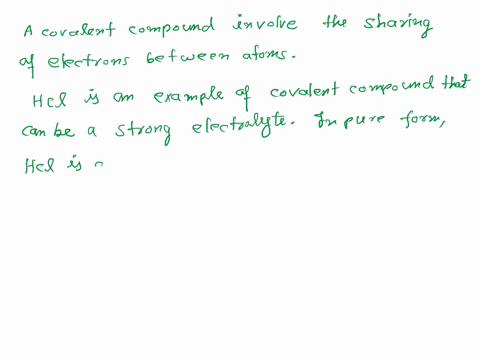 A covalent compound involve the sharing
of electrons between atoms.
Hcl is an example of covalent compound that
can be a strong electralyte. In pure form,
Hcl is